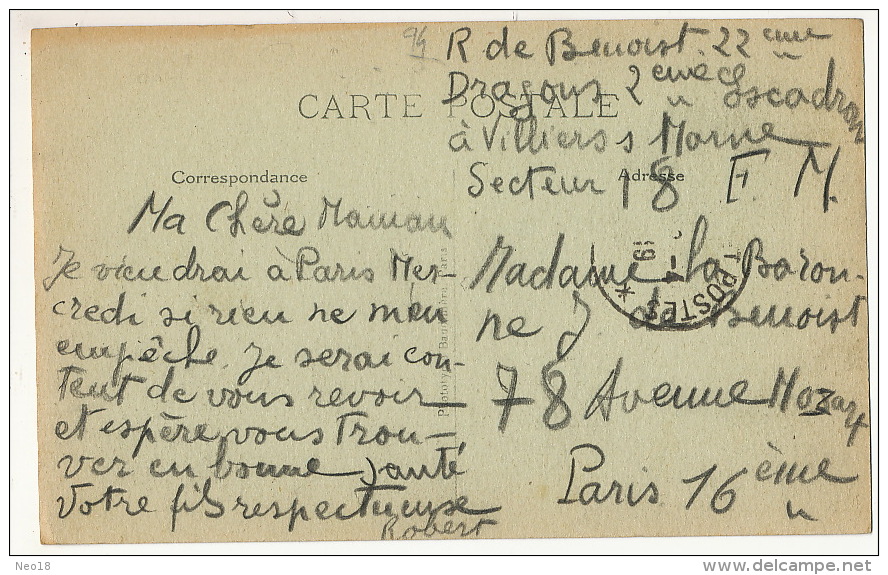 R de Benoist. 22 eme
Dragons 2 eme escadron
CARTE POSTALE
à Villiers s Marne
Secteur 18 F. M.
Correspondance
Adresse
Ma Chère Maman
Je viendrai à Paris Mer-
credi si rien ne m'en
empêche. Je serai con-
tent de vous revoir
et espère vous trou-
ver en bonne santé
Votre fils respectueuse
Robert
Madame la Baron-
ne J. de Benoist
78 Avenue Mozart
Paris 16 ème
POSTES
19
Neo18
www.delcampe.net